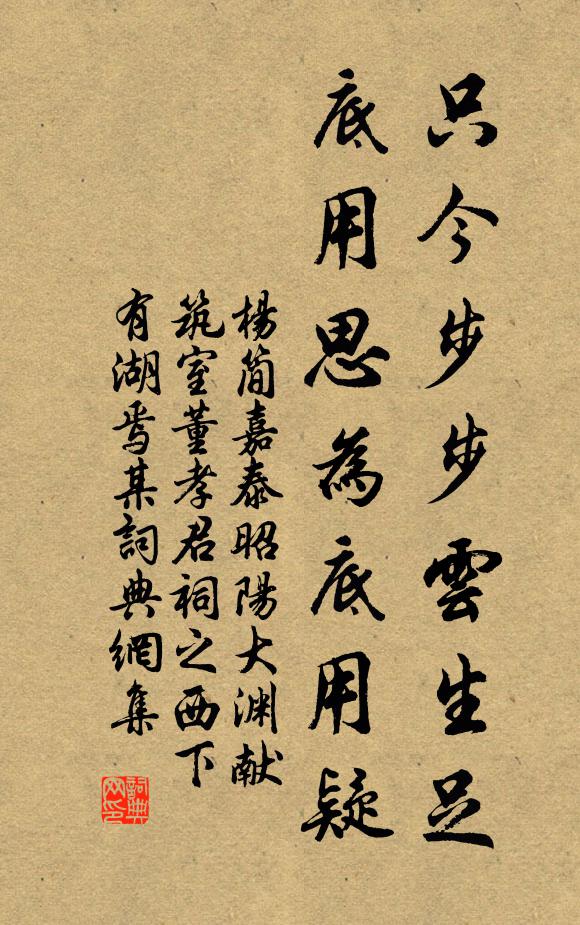 只今步步雲生足
底用思為底用疑
楊簡嘉泰昭陽大渊献
筑室董孝君祠之西下
有湖焉某詞典網集
詞典网印